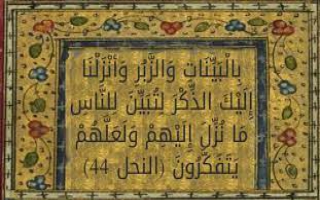 بِالْبَيِّنَاتِ وَالزُّبُرِ وَأَنْزَلْنَا
إِلَيْكَ الذِّكْرَ لِتُبَيِّنَ لِلنَّاسِ
مَا نُزِّلَ إِلَيْهِمْ وَلَعَلَّهُمْ
يَتَفَكَّرُونَ (النحل 44)